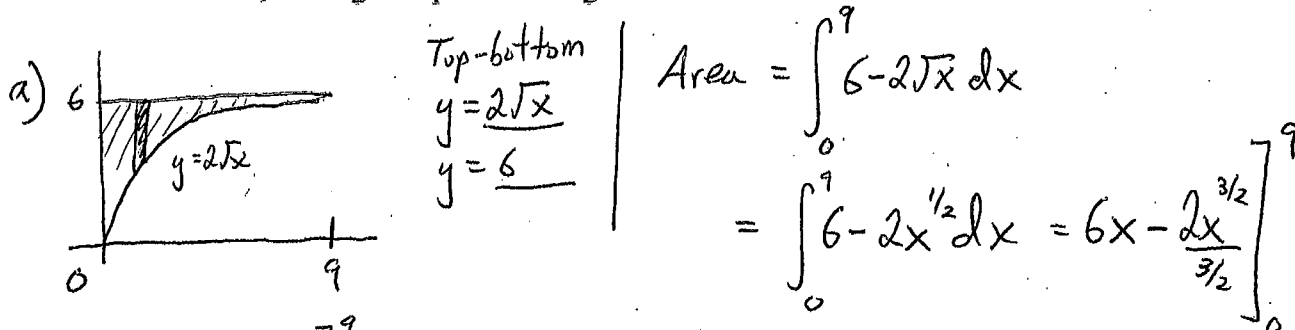 a) 6
y=2√x
0 9
Top-bottom
y = 2√x
y = 6
Area = ∫₀⁹ 6-2√x dx
= ∫₀⁹ 6-2x^{1/2} dx = 6x - 2x^{3/2}/(3/2) ]₀⁹